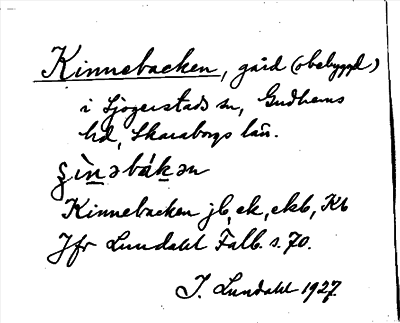 Kinnebacken, gård (obebyggd)
i Sjogerstads sn, Gudhems
hd, Skaraborgs län.
ʂìn̲əbák̲ən
Kinnebacken jb, ek, ekb, Kb
Jfr Lundahl Falb. s. 70.
I. Lundahl 1927.